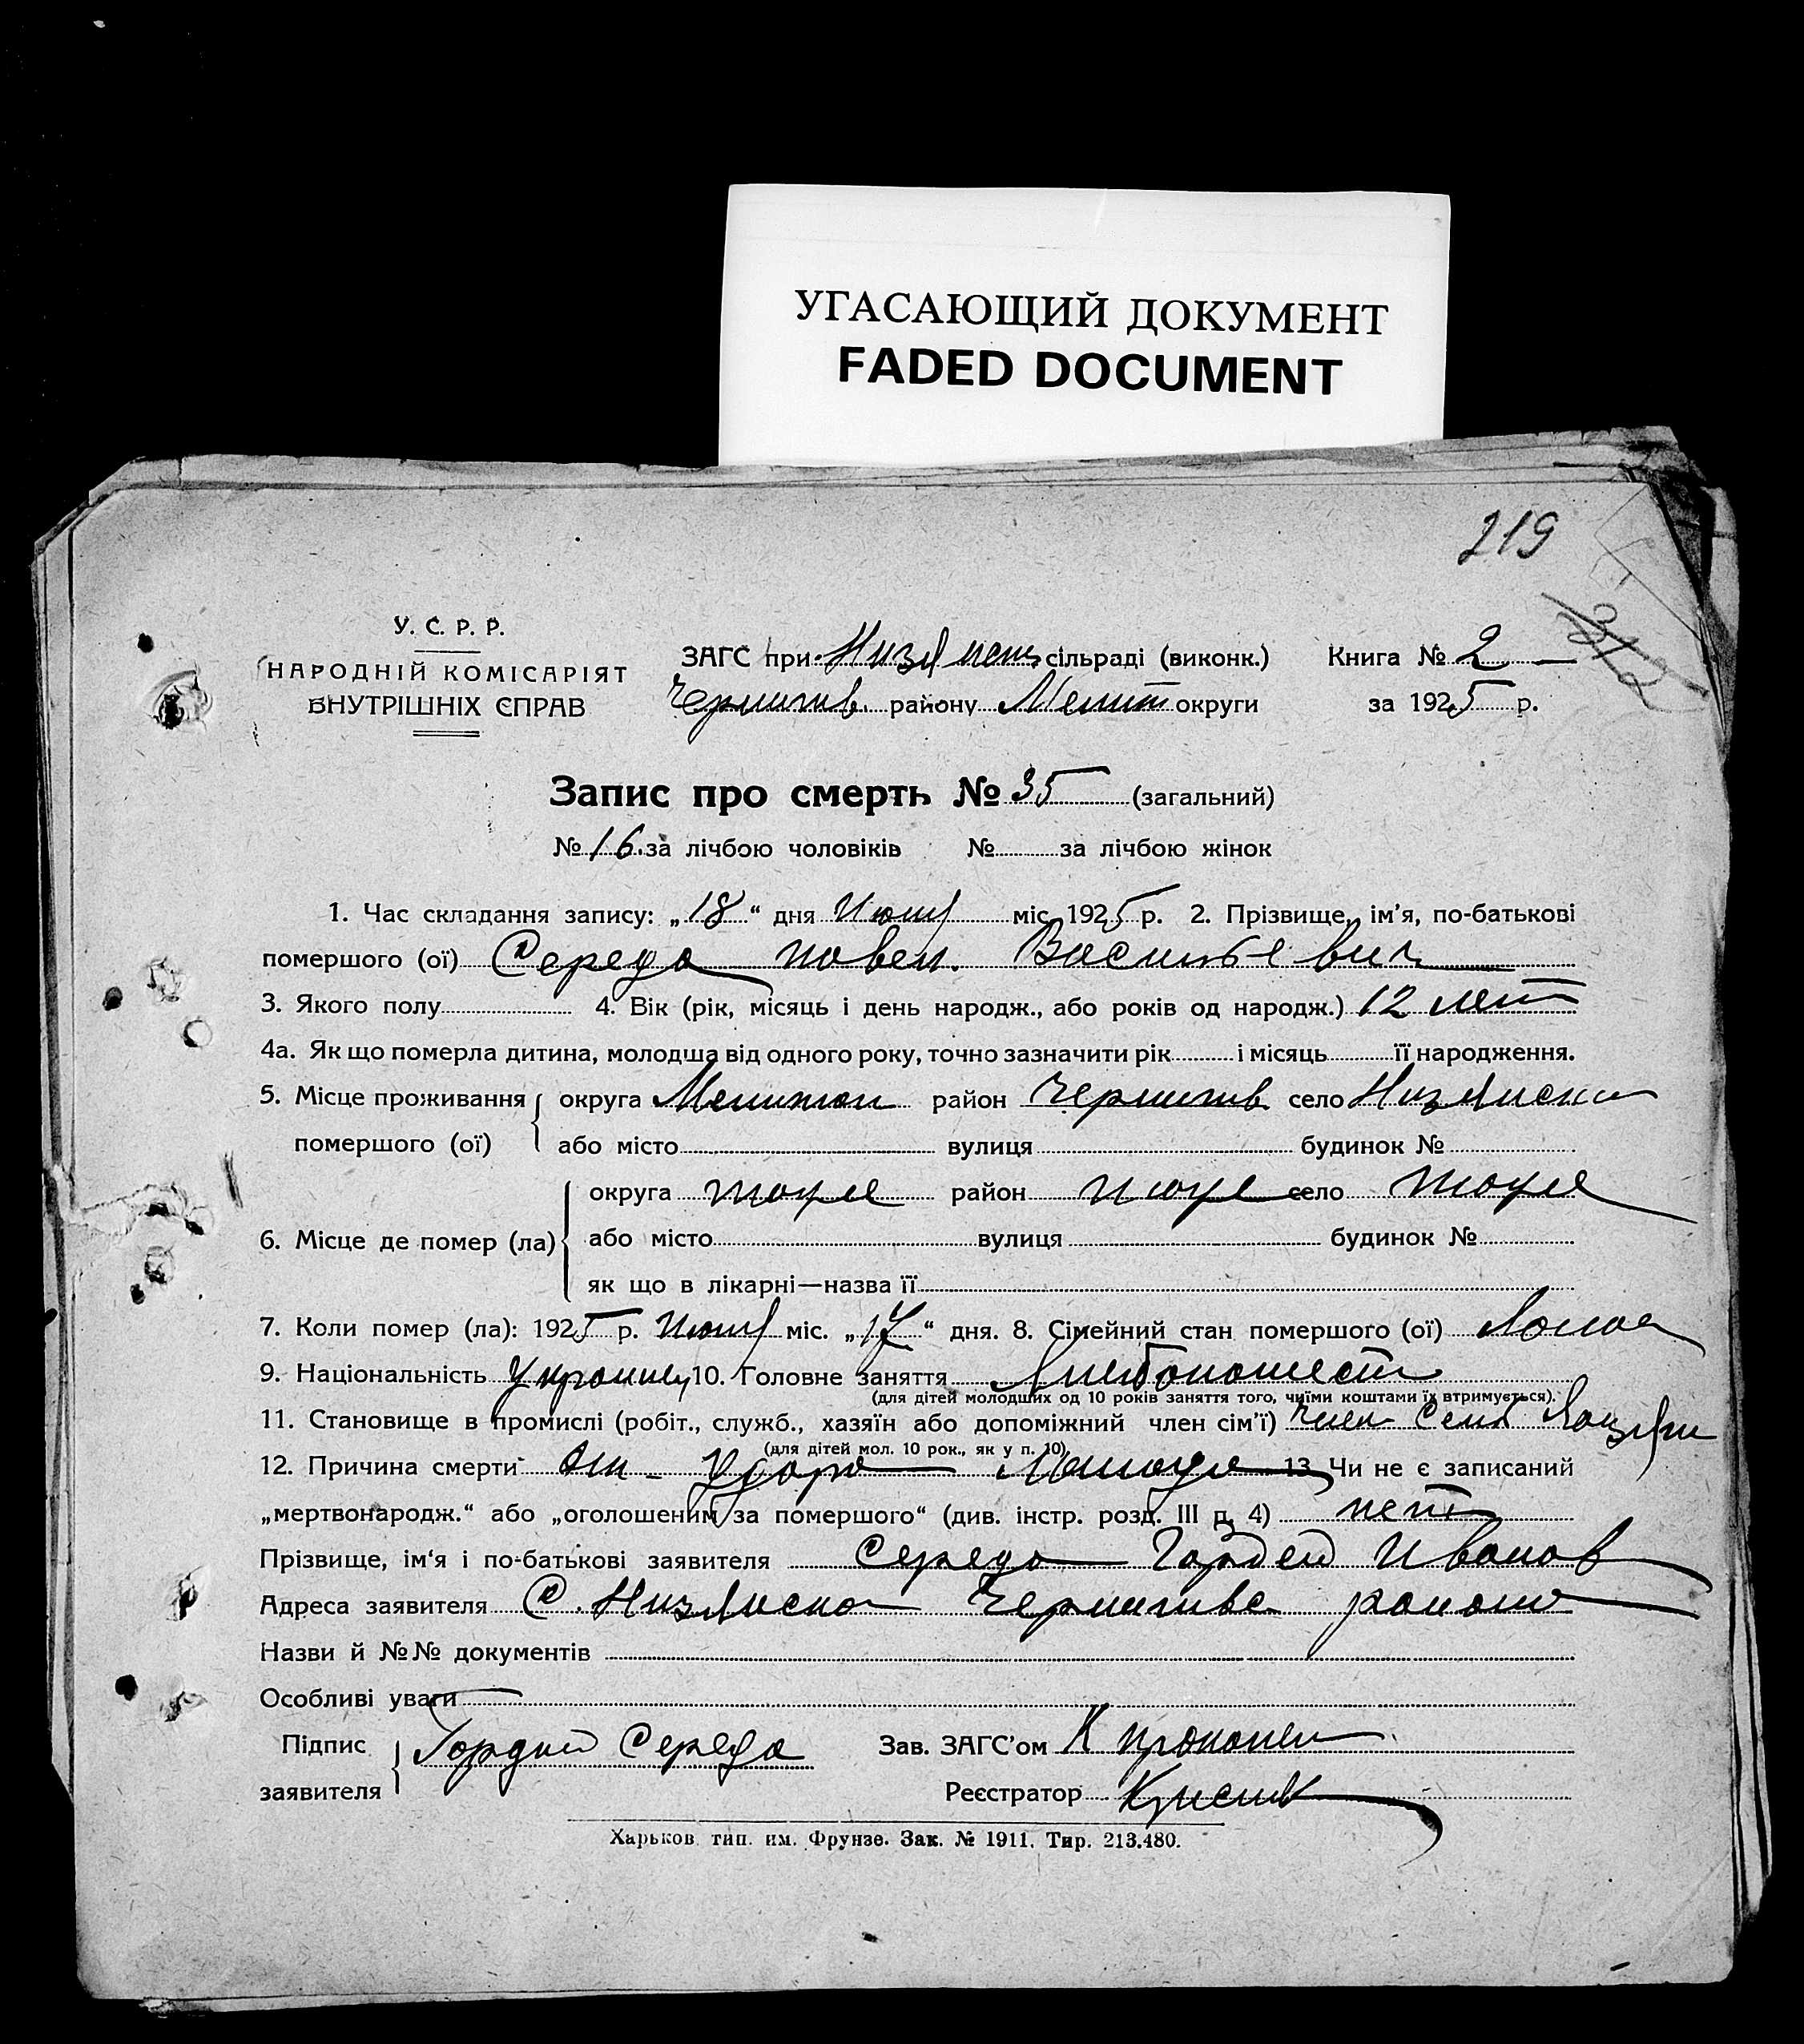 УГАСАЮЩИЙ ДОКУМЕНТ
FADED DOCUMENT
219
У. С. Р. Р.
НАРОДНІЙ КОМІСАРІЯТ
ВНУТРІШНІХ СПРАВ
ЗАГС при сільраді (виконк.) Книга № 2
Чернигів. району Мелит округи за 1925 р.
Запис про смерть № 35 (загальний)
№ 16. за лічбою чоловіків № за лічбою жінок
1. Час складання запису: „18“ дня міс. 1925 р. 2. Прізвище, ім'я, по-батькові
помершого (ої) Середа Павел. Васильевич
3. Якого полу 4. Вік (рік, місяць і день народж., або років од народж.) 12 лет
4а. Як що померла дитина, молодша від одного року, точно зазначити рік і місяць її народження.
5. Місце проживання округа Мелитоп район Чернигів село
помершого (ої) або місто вулиця будинок №
округа тоже район тоже село тоже
6. Місце де помер (ла) або місто вулиця будинок №
як що в лікарні—назва її
7. Коли помер (ла): 1925 р. міс. „17“ дня. 8. Сімейний стан помершого (ої) Холост
9. Національність Украинец 10. Головне заняття Хлебопашест
(для дітей молодших од 10 років заняття того, чиїми коштами їх втримується).
11. Становище в промислі (робіт., служб., хазяїн або допоміжний член сім'ї) член семь
(для дітей мол. 10 рок., як у п. 10)
12. Причина смерти От удара 13. Чи не є записаний
„мертвонародж.“ або „оголошеним за помершого“ (див. інстр. розд. III п. 4) нет
Прізвище, ім'я і по-батькові заявителя Середа Гордей Иванов
Адреса заявителя С. района
Назви й №№ документів
Особливі уваги
Підпис Гордей Середа Зав. ЗАГС'ом
заявителя Реєстратор
Харьков. тип. им. Фрунзе. Зак. № 1911. Тир. 213.480.